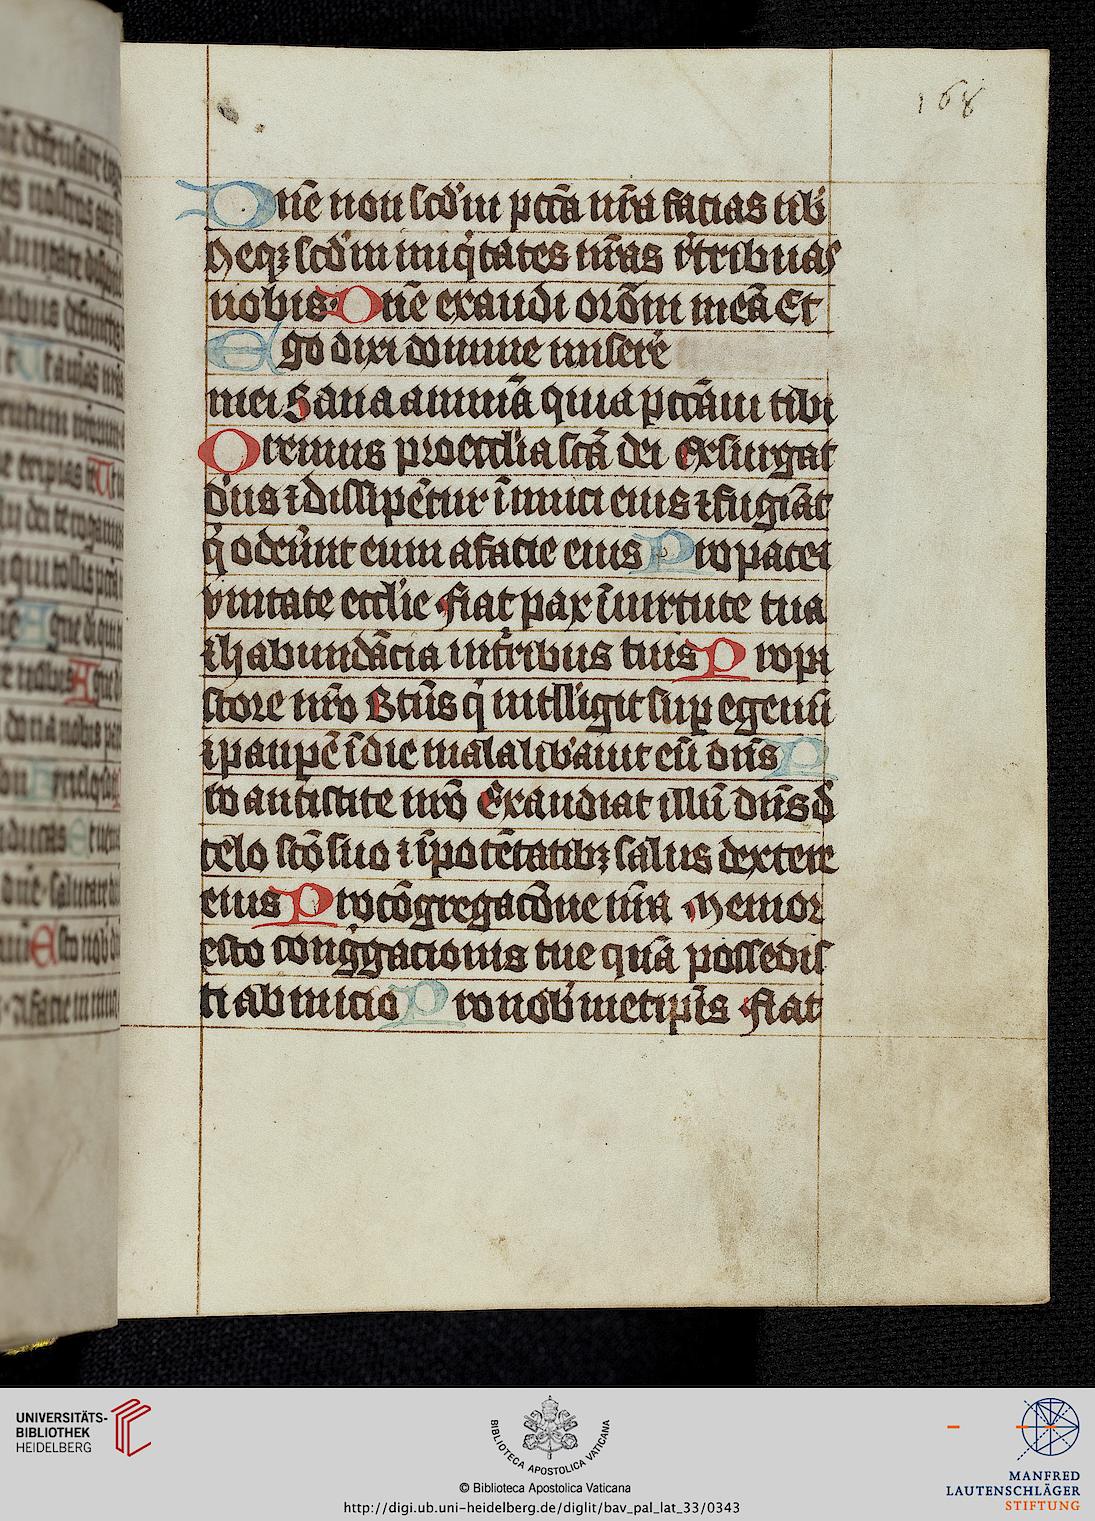 168
Dn̄e non scd'm pctā nr̄a facias nb'
Neqꝫ scd'm iniq'tates nr̄as r'tribuas
nobis Dn̄e exaudi or̄om meā Et
Ego dixi domine misere
mei Sana animā quia pccāui tibi
Oremus pro eccl'ia scā dei Exsurgat
d'us ⁊ dissipēt'ur īmici eius ⁊ fugiāt
q' oder'unt eum a facie eius Pro pace ⁊
vnitate eccl'ie Fiat pax ī uirtute tua
⁊ habundācia in t'ribus tuis Pro pa
store nr̄o Btūs q' intll'igit sup egenū
⁊ paup̄e ī die mala lib'auit eū dn̄s P
ro antistite nr̄o Exaudiat illū dn̄s d'
celo scō suo ⁊ ī potētatibꝫ salus dextere
eius Pro cōgregacōne nr̄a Memor
esto cong'gacionis tue quā possedis
ti ab inicio Pro nob' metip̄is Fiat
UNIVERSITÄTS-
BIBLIOTHEK
HEIDELBERG
BIBLIOTECA APOSTOLICA VATICANA
© Biblioteca Apostolica Vaticana
http://digi.ub.uni-heidelberg.de/diglit/bav_pal_lat_33/0343
MANFRED
LAUTENSCHLÄGER
STIFTUNG